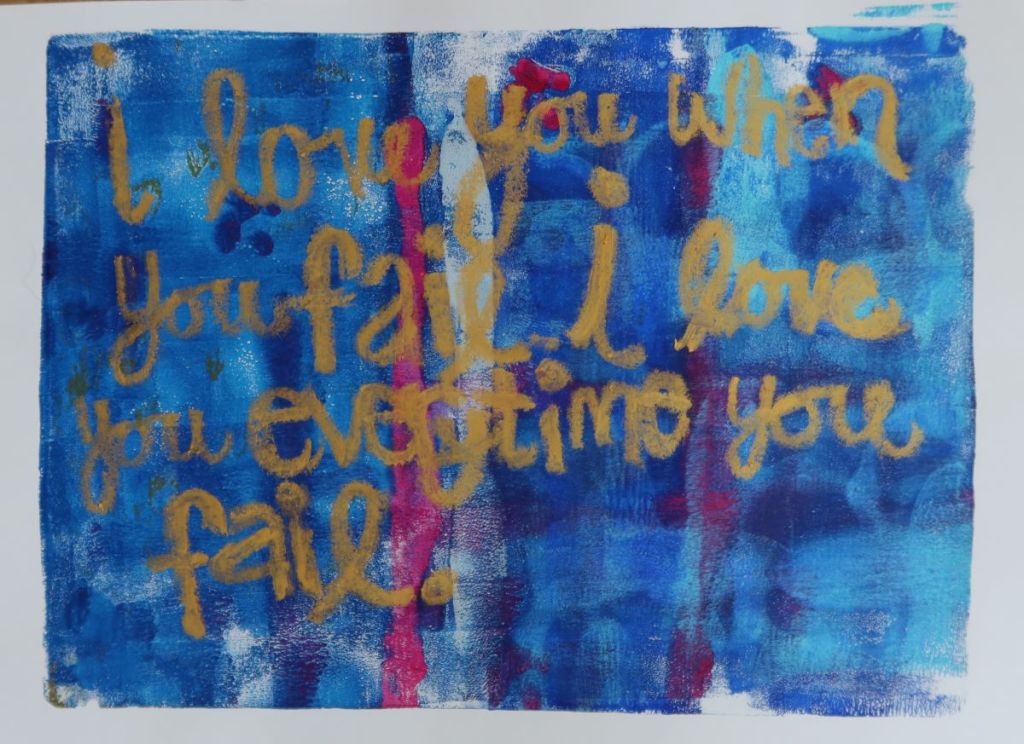 i love you when
you fail. i love
you everytime you
fail.